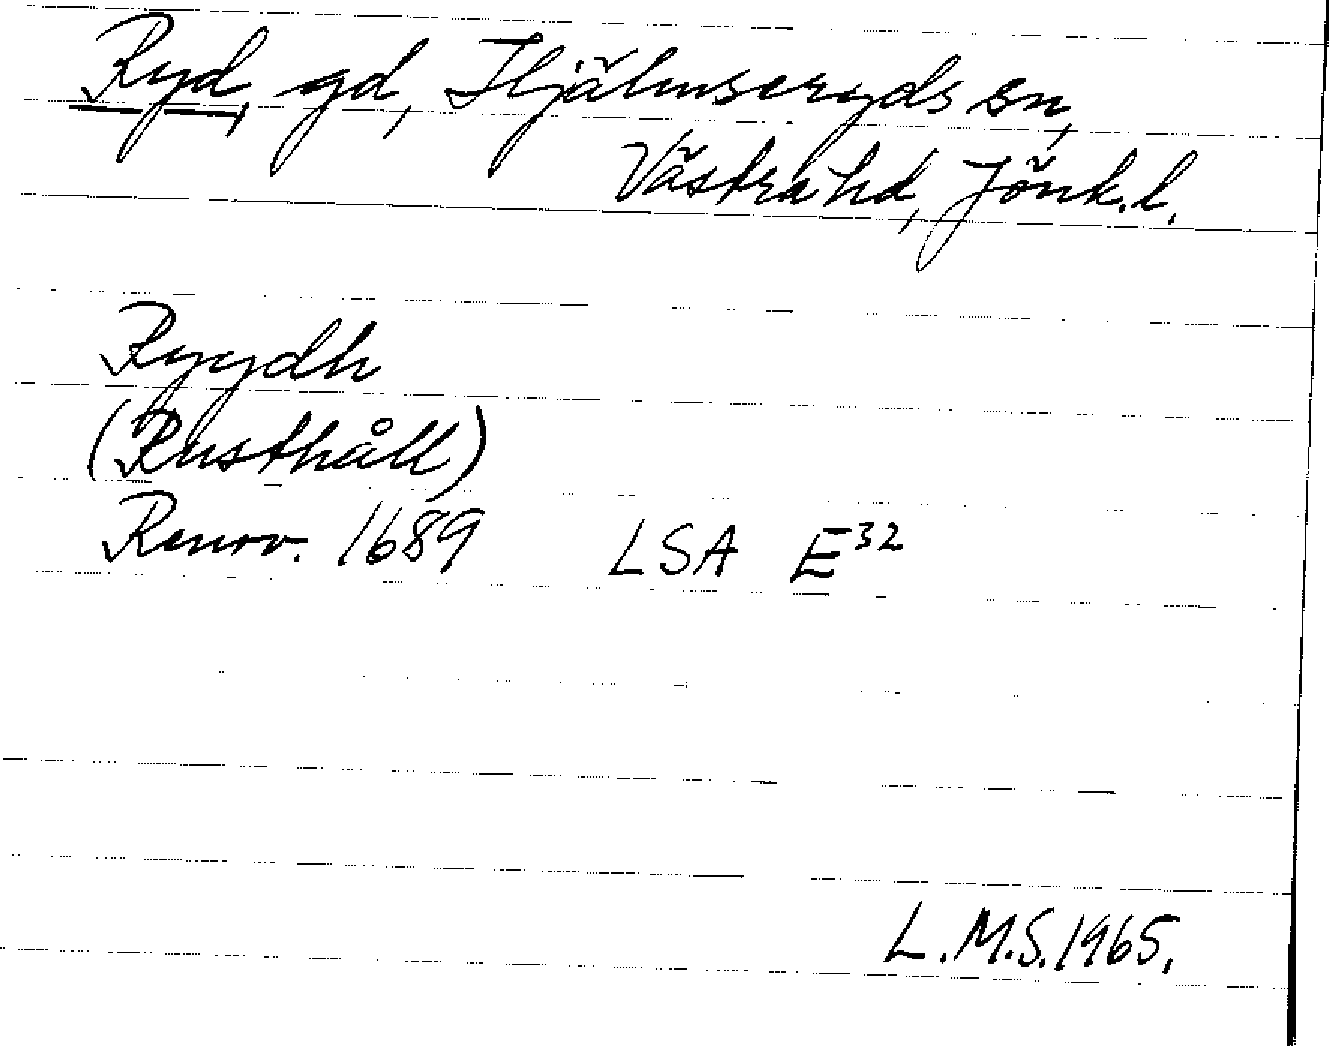 Ryd, gd, Hjälmseryds sn,
Västra hd, Jönk.l.
Ryydh
(Rusthåll)
Renov. 1689 LSA E32
L.M.S. 1965.